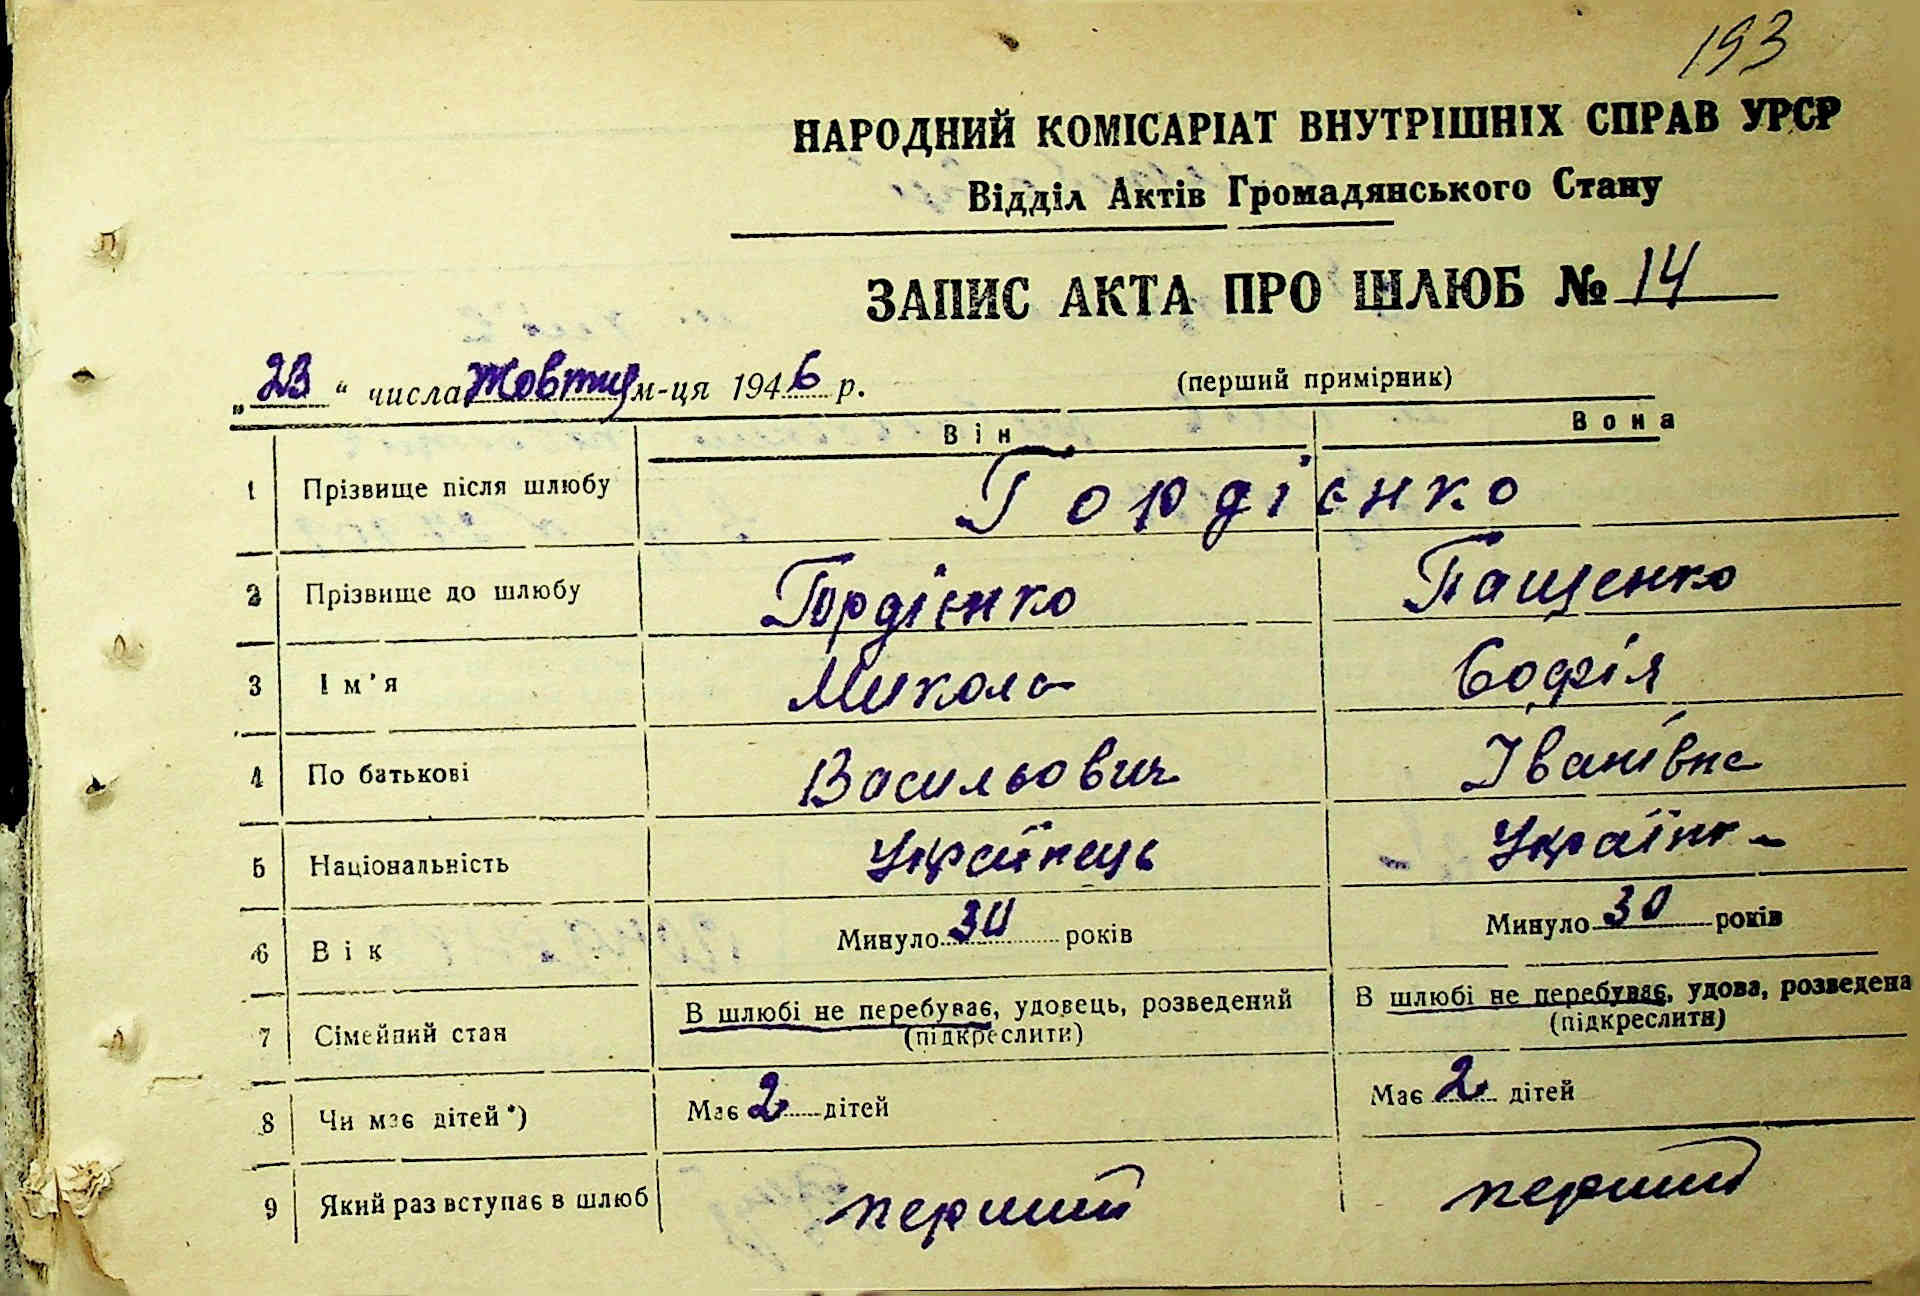 193
НАРОДНИЙ КОМІСАРІАТ ВНУТРІШНІХ СПРАВ УРСР
Відділ Актів Громадянського Стану
ЗАПИС АКТА ПРО ШЛЮБ № 14
„23" числа Жовтня м-ця 1946 р. (перший примірник)
Він Вона
1 Прізвище після шлюбу Гордієнко
2 Прізвище до шлюбу Гордієнко Пащенко
3 Ім'я Микола Софія
4 По батькові Васильович Іванівна
5 Національність Українець Українка
6 Вік Минуло 30 років Минуло 30 років
7 Сімейний стан В шлюбі не перебуває, удовець, розведений В шлюбі не перебуває, удова, розведена
(підкреслити) (підкреслити)
8 Чи має дітей*) Має 2 дітей Має 2 дітей
9 Який раз вступає в шлюб перший перший